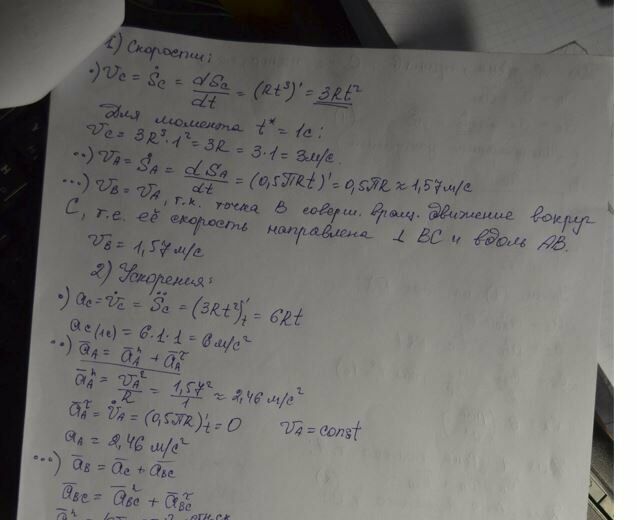 1) Скорости:
•) Vc = Ṡc = dSc/dt = (Rt³)' = 3Rt²
Для момента t* = 1с:
Vc = 3R³·1² = 3R = 3·1 = 3м/с.
••) VA = ṠA = dSA/dt = (0,5πRt)' = 0,5πR ≈ 1,57м/с
•••) VB = VA, т.к. точка B соверш. вращ. движение вокруг
C, т.е. её скорость направлена ⊥ BC и вдоль AB.
VB = 1,57м/с
2) Ускорения:
•) ac = V̇c = S̈c = (3Rt²)'t = 6Rt
ac(1c) = 6·1·1 = 6м/с²
••) āA = āAⁿ + āAᵗ
āAⁿ = VA²/R = 1,57²/1 ≈ 2,46 м/с²
āAᵗ = V̇A = (0,5πR)'t = 0 VA = const
aA = 2,46 м/с²
•••) āB = āc + āBC
āBC = āBCⁿ + āBCᵗ